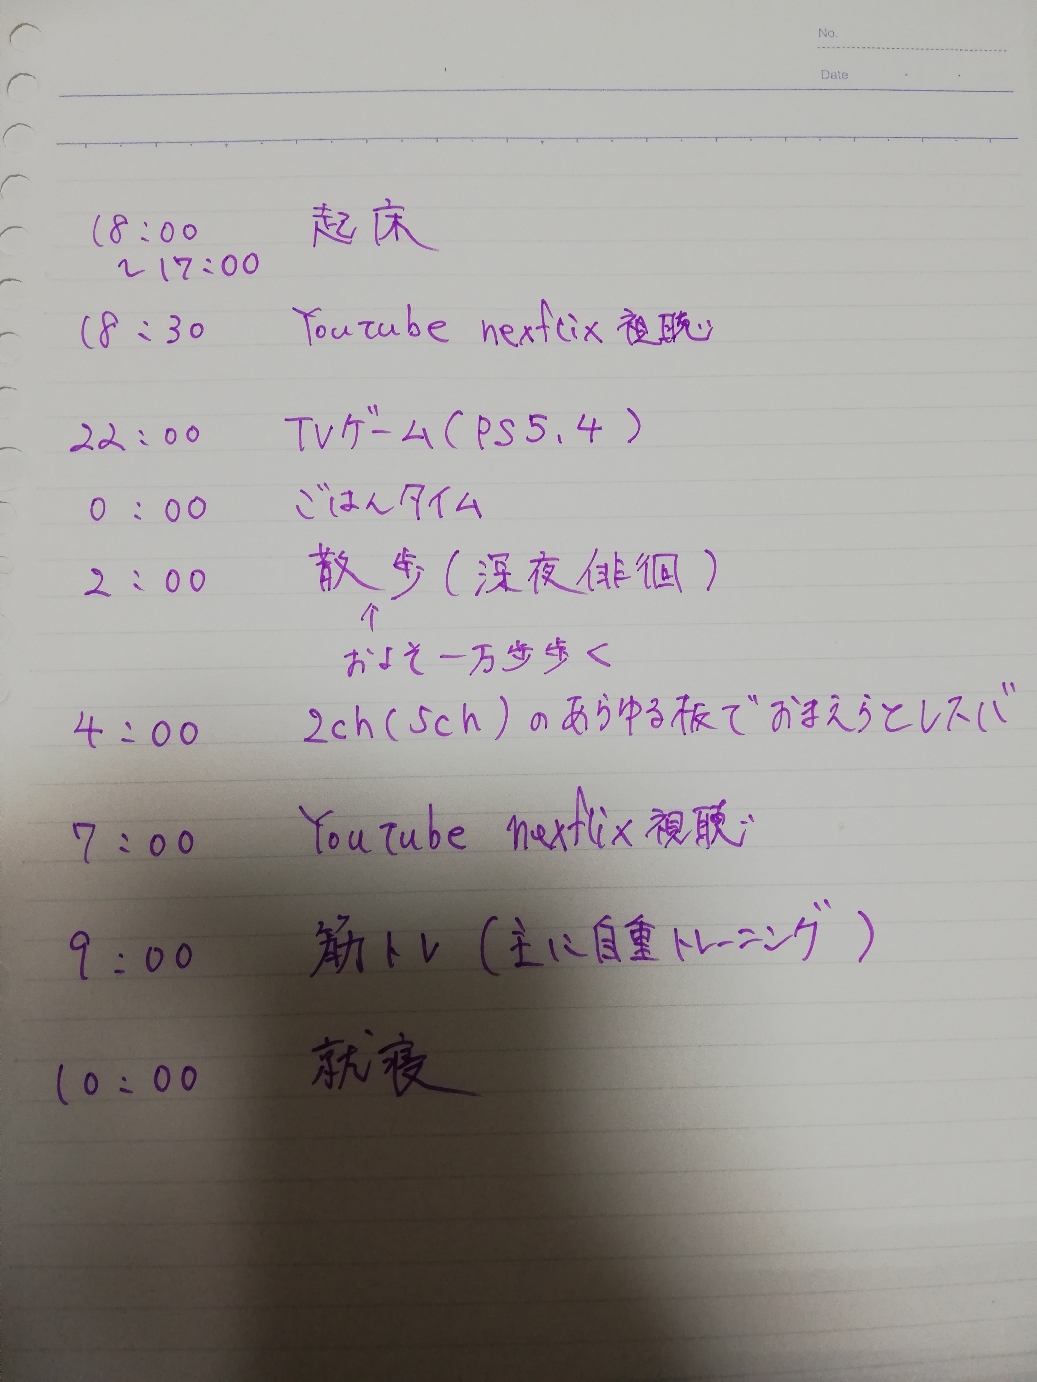 No.
Date
18:00 起床
~17:00
18:30 Youtube nexflix 視聴
22:00 TVゲーム(PS5.4)
0:00 ごはんタイム
2:00 散歩(深夜俳徊)
↑
およそ一万歩歩く
4:00 2ch(5ch)のあらゆる板でおまえらとレスバ
7:00 Youtube nexflix 視聴
9:00 筋トレ(主に自重トレーニング)
10:00 就寝